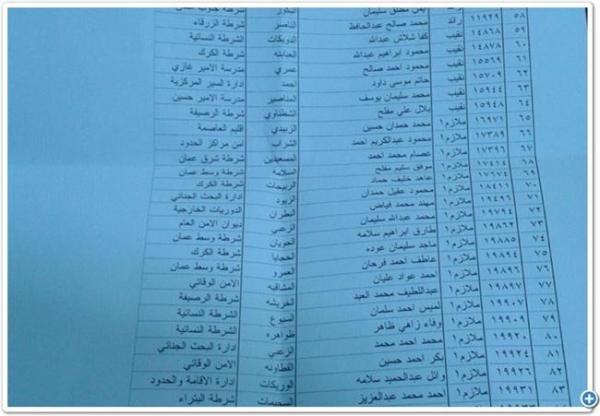 ايمن مطلق سليمان شرطة جنوب عمان
٥٨ ١١٩٢٩ رائد محمد صالح عبدالحافظ الناصر شرطة الزرقاء
٥٩ ١٤٨٦٨ نقيب كفا شلاش عبدالله الدويكات الشرطة النسائية
٦٠ ١٤٨٧٨ نقيب محمود ابراهيم عبدالله العبابنه شرطة الكرك
٦١ ١٥٥٦٩ نقيب محمود احمد صالح عمري مدرسة الامير غازي
٦٢ ١٥٧٠٩ نقيب حاتم موسى داود احمد ادارة السير المركزية
٦٣ ١٥٩٤٤ نقيب محمد سليمان يوسف المناصير مدرسة الامير حسين
٦٤ ١٥٩٤٨ نقيب بلال علي مفلح الشطناوي شرطة الرصيفة
٦٥ ١٦٩٧١ ملازم١ محمد حمدان حسين الزبيدي اقليم العاصمة
٦٦ ١٧٣٨٩ ملازم١ محمود عبدالكريم احمد الشراب امن مراكز الحدود
٦٧ ١٧٣٩٦ ملازم١ عصام محمد احمد شرطة شرق عمان
٦٨ ١٧٤١٤ ملازم١ موفق سليم مفلح السلامه
٦٩ ١٧٦٧٤ ملازم١ عاهد خليف حماد الربيحات شرطة الكرك
٧٠ ١٨٤١١ ملازم١ محمود عقيل حمدان الزيود ادارة البحث الجنائي
١٩٤٩٦ ملازم١ مهند محمد فياض البطران الدوريات الخارجية
٧٢ ١٩٧٩٤ ملازم١ محمد عبدالله سليمان الزعبي ديوان الامن العام
٧٣ ١٩٨٦٢ ملازم١ طارق ابراهيم سلامه الحويان شرطة وسط عمان
٧٤ ١٩٨٨٥ ملازم١ ماجد سليمان عوده الحجايا شرطة الكرك
٧٥ ١٩٨٩٤ ملازم١ عاطف احمد فرحان العمرو شرطة وسط عمان
٧٦ ١٩٨٩٦ ملازم١ احمد عواد عليان المشاقبه الامن الوقائي
٧٧ ١٩٨٩٧ ملازم١ عبداللطيف محمد العيد الخريشه شرطة الرصيفة
٧٨ ١٩٩٠٧ ملازم١ لميس احمد سلمان السبوع الشرطة النسائية
٧٩ ١٩٩٠٩ ملازم١ وفاء زاهي ظاهر ظواهره الشرطة النسائية
٨٠ ١٩٩٢٠ ملازم١ محمد احمد محمد الزعبي ادارة البحث الجنائي
٨١ ١٩٩٢٤ ملازم١ بكر احمد حسين القطاونه الامن الوقائي
٨٢ ١٩٩٢٦ ملازم١ وائل عبدالحميد سلامه الوريكات ادارة الاقامة والحدود
٨٣ ١٩٩٣١ ملازم١ محمد احمد عبدالعزيز السحيمات شرطة البتراء